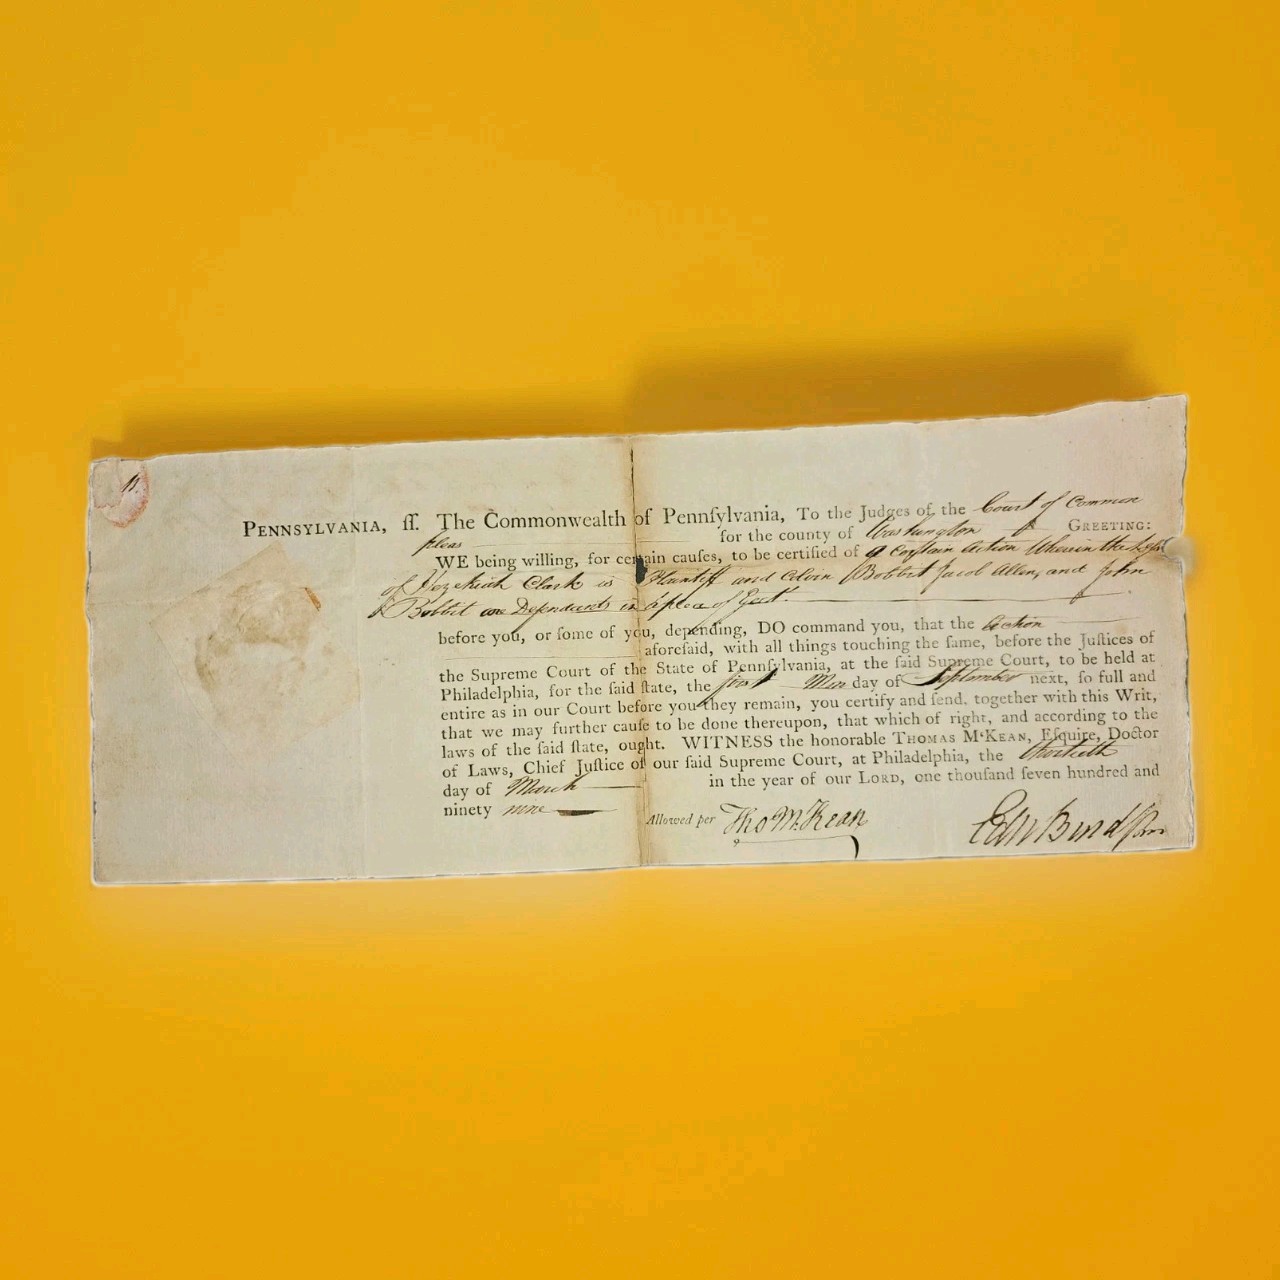 11
PENNSYLVANIA, ſſ. The Commonwealth of Pennſylvania, To the Judges of the Court of Common
pleas for the county of Washington GREETING:
WE being willing, for certain cauſes, to be certified of a Certain Action Wherein the
of Hezekiah Clark is Plantiff and Colvin Bobbit Jacob Allen, and John
Bobbit are Defendants in a plea of Eject.
before you, or ſome of you, depending, DO command you, that the Action
aforeſaid, with all things touching the ſame, before the Juſtices of
the Supreme Court of the State of Pennſylvania, at the ſaid Supreme Court, to be held at
Philadelphia, for the ſaid ſtate, the first Mon day of September next, ſo full and
entire as in our Court before you they remain, you certify and ſend, together with this Writ,
that we may further cauſe to be done thereupon, that which of right, and according to the
laws of the ſaid ſtate, ought. WITNESS the honorable THOMAS M'KEAN, Eſquire, Doctor
of Laws, Chief Juſtice of our ſaid Supreme Court, at Philadelphia, the
day of March in the year of our LORD, one thouſand ſeven hundred and
ninety nine
Allowed per Tho M:Kean Edw Burd